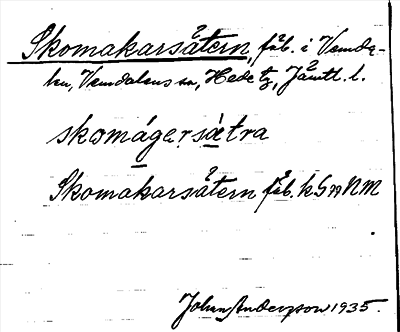 Skomakarsåtern, fäb. i Vemda-
len, Vemdalens sn, Hede tg, Jämtl. l.
skomágersætra
Skomakarsåtern fäb. k G
Johan Anderzson 1935.